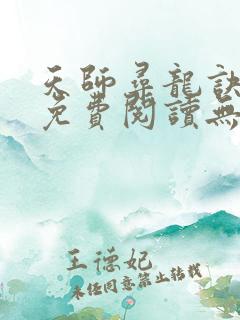 天師尋龍訣
免費閱讀無
王德妃
未经同意禁止转载